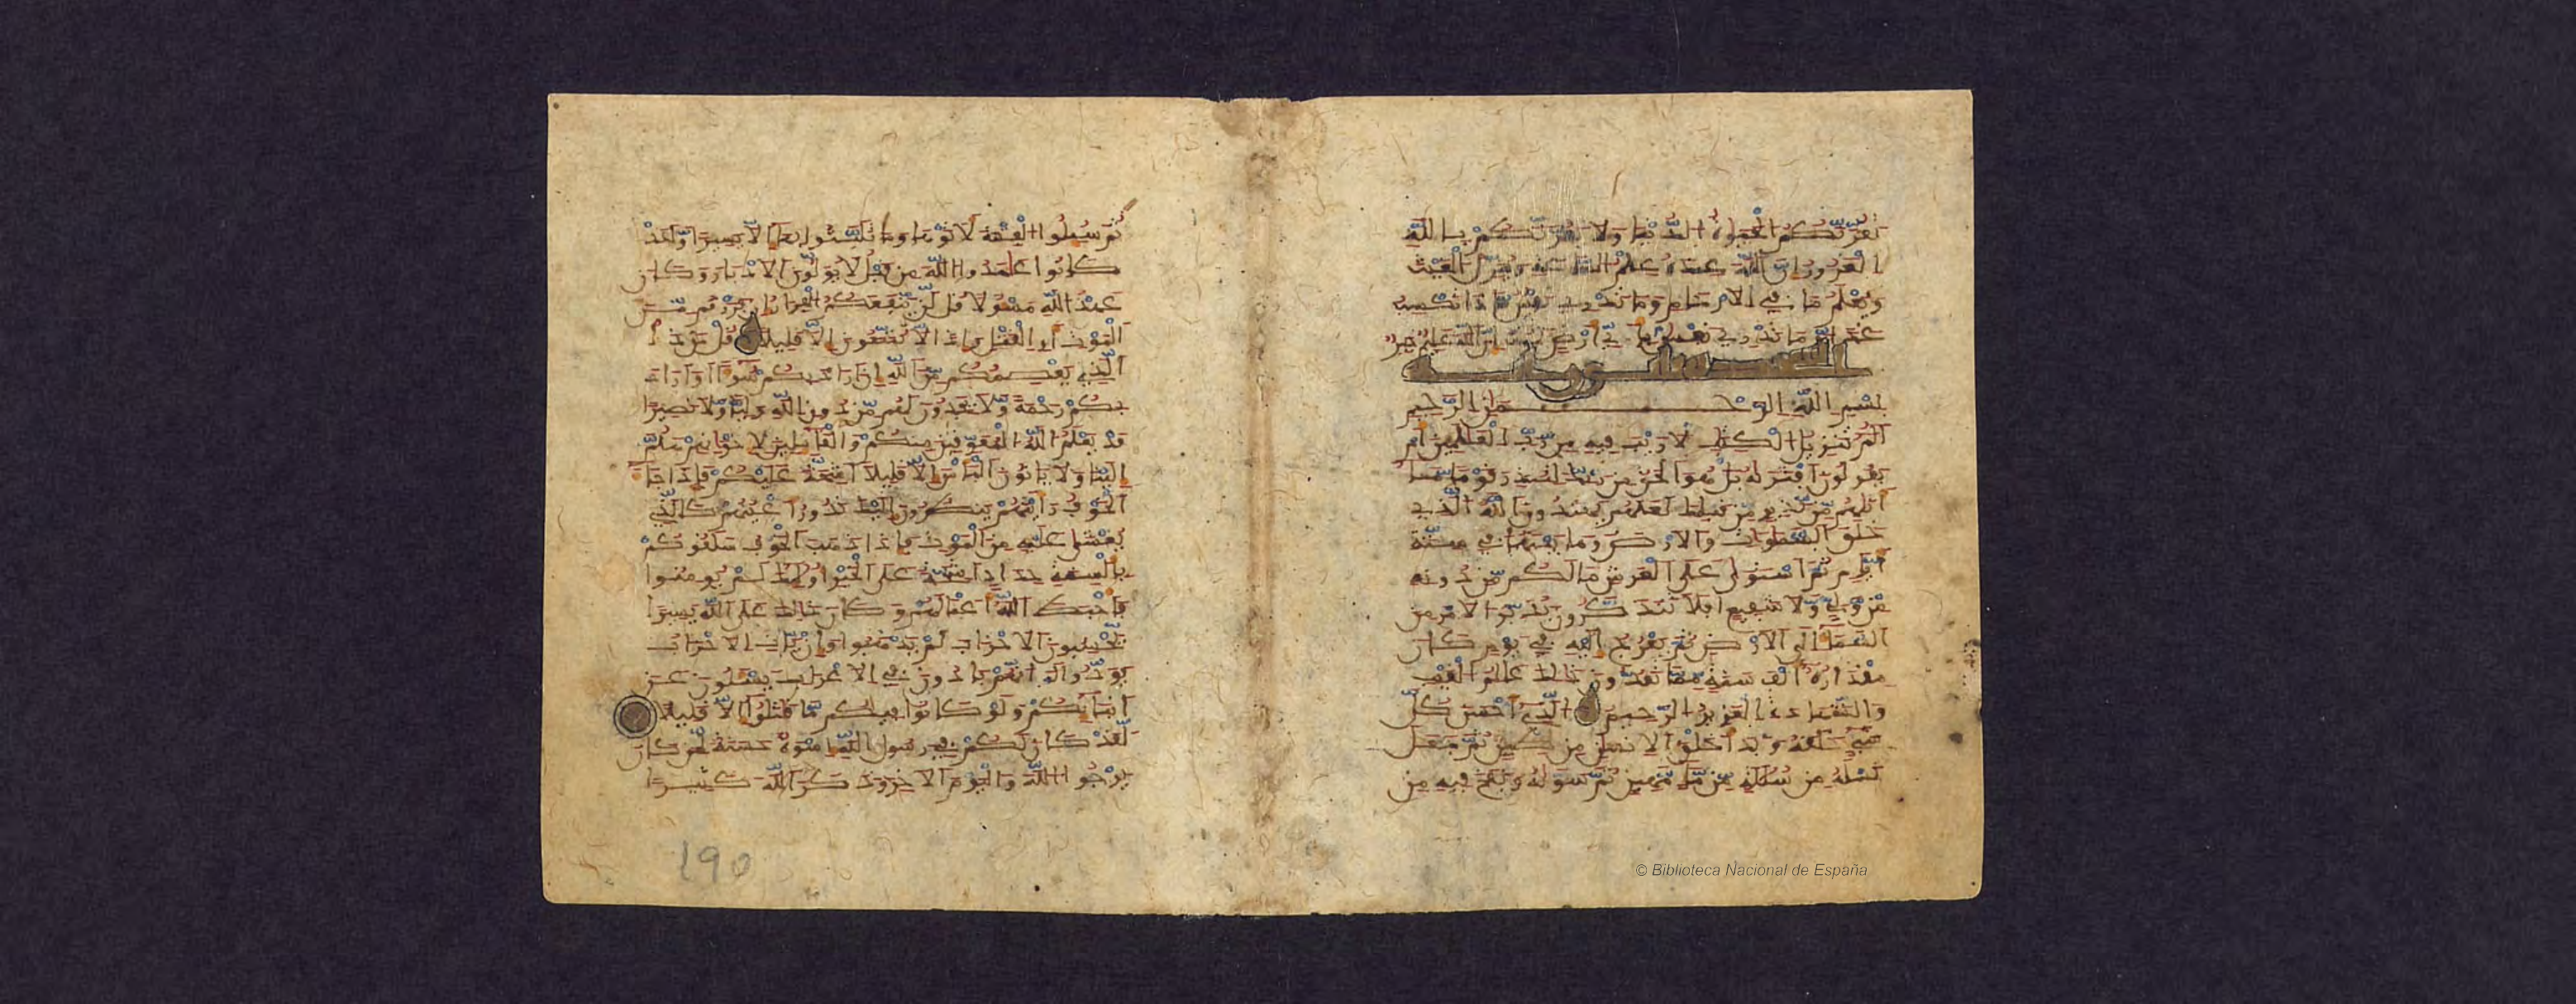 تغرنكم الحيوة الدنيا ولا يغرنكم بالله
الغرور ان الله عنده علم الساعة وينزل الغيث
ويعلم ما في الارحام وما تدري نفس ماذا تكسب
غدا وما تدري نفس باي ارض تموت ان الله عليم خبير
السجدة
بسم الله الرحمن الرحيم
الم تنزيل الكتب لا ريب فيه من رب العلمين ام
يقولون افتريه بل هو الحق من ربك لتنذر قوما ما
اتيهم من نذير من قبلك لعلهم يهتدون الله الذي
خلق السموات والارض وما بينهما في ستة
ايام ثم استوى على العرش ما لكم من دونه
من ولي ولا شفيع افلا تتذكرون يدبر الامر من
السماء الى الارض ثم يعرج اليه في يوم كان
مقداره الف سنة مما تعدون ذلك علم الغيب
والشهادة العزيز الرحيم الذي احسن كل
شيء خلقه وبدا خلق الانسن من طين ثم جعل
نسله من سللة من ماء مهين ثم سويه ونفخ فيه من
ثم سيلوا الفتنة لاتوها وما تلبثوا بها الا يسيرا ولقد
كانوا عهدوا الله من قبل لا يولون الادبار وكان
عهد الله مسولا قل لن ينفعكم الفرار ان فررتم من
الموت او القتل واذا لا تمتعون الا قليلا قل من ذا
الذي يعصمكم من الله ان اراد بكم سوءا او اراد
بكم رحمة ولا يجدون لهم من دون الله وليا ولا نصيرا
قد يعلم الله المعوقين منكم والقايلين لاخوانهم هلم
الينا ولا ياتون الباس الا قليلا اشحة عليكم فاذا جاء
الخوف رايتهم ينظرون اليك تدور اعينهم كالذي
يغشى عليه من الموت فاذا ذهب الخوف سلقوكم
بالسنة حداد اشحة على الخير اوليك لم يومنوا
فاحبط الله اعملهم وكان ذلك على الله يسيرا
تحسبون الاحزاب لم يذهبوا وان يات الاحزاب
يودوا لو انهم بادون في الاعراب يسلون عن
انبايكم ولو كانوا فيكم ما قتلوا الا قليلا
لقد كان لكم في رسول الله اسوة حسنة لمن كان
يرجوا الله واليوم الاخر وذكر الله كثيرا
190
© Biblioteca Nacional de España